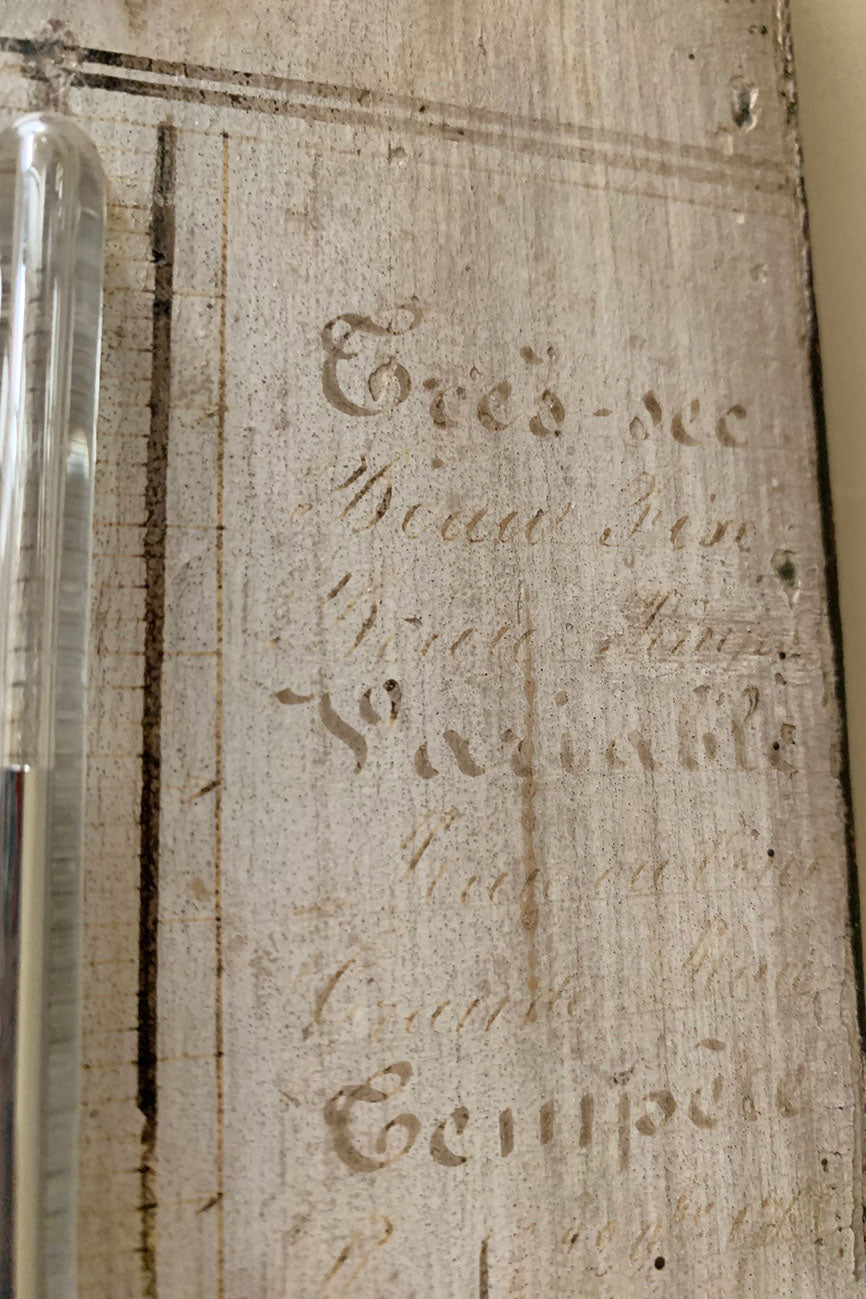 Très-sec
Beau Fixe
Beau Temps
Variable
Pluie ou Vent
Grande Pluie
Tempête